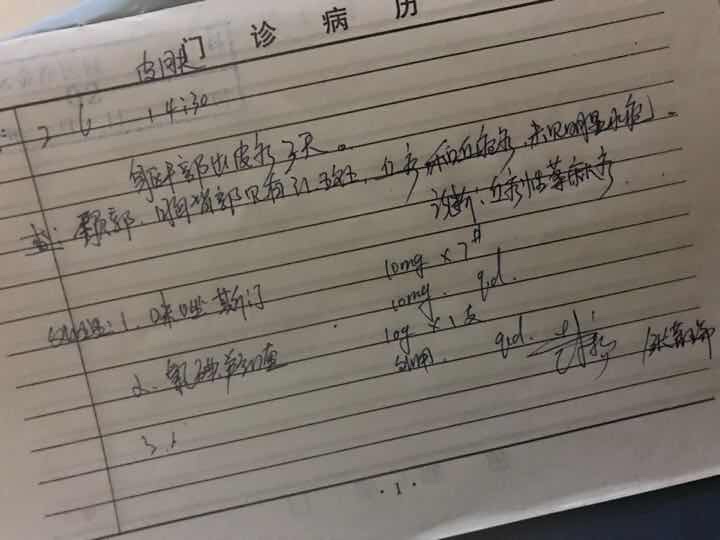 诊病历
皮肤门
7 6 14:30
躯干部出皮疹3天。
颈部、胸背部见有红斑、丘疹和丘疱疹,未见明显水疱。
诊断:丘疹性荨麻疹
处理:1. 咪唑斯汀 10mg × 7#
10mg. qd.
2. 氟 10g × 1支
外用. qd.
3.
· 1 ·